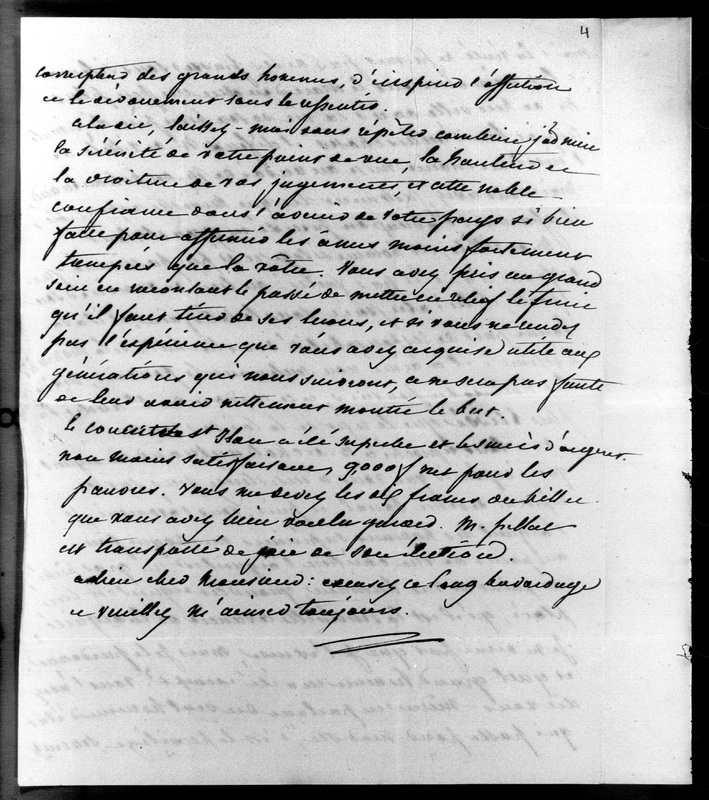 4
correspond des grands hommes, d'inspirer l'affection
et le dévouement tous le
adieu, laissez-moi vous répéter combien j'admire
la sérénité de votre point de vue, la hauteur et
la droiture de vos jugements, et cette noble
confiance dans l'avenir de votre pays si bien
faite pour affermir les âmes moins fortement
trempées que la vôtre. Vous avez pris un grand
soin en racontant le passé de mettre en relief le fruit
qu'il faut tirer de ses leçons, et si vous ne rendez
pas l'expérience que vous avez acquise utile aux
générations qui nous suivront, ce ne sera pas faute
de leur avoir nettement montré le but.
Le concert a été superbe et les
non moins satisfaisant, 9,000 f net pour les
pauvres. Vous me devez les dix francs du billet
que vous avez bien voulu garder. M.
est transporté de joie de son élection.
adieu cher Monsieur: excusez ce long bavardage
et veuillez m'aimer toujours.